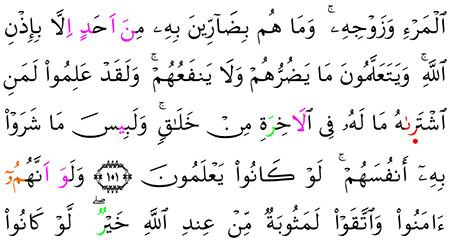 اَ۬لْمَرْءِ وَزَوْجِهِۦۖ وَمَا هُم بِضَآرِّينَ بِهِۦ مِنَ اَحَدٍ اِلَّا بِإِذْنِ
اِ۬للَّهِۖ وَيَتَعَلَّمُونَ مَا يَضُرُّهُمْ وَلَا يَنفَعُهُمْۖ وَلَقَدْ عَلِمُوا۟ لَمَنِ
اِ۪شْتَر۪ىٰهُ مَا لَهُۥ فِى اِ۬لَاخِرَةِ مِنْ خَلَٰقٍۖ وَلَبِيسَ مَا شَرَوْا۟
بِهِۦٓ أَنفُسَهُمْۖ لَوْ كَانُوا۟ يَعْلَمُونَ ١٠١ وَلَوَ اَنَّهُمُۥٓ
ءَامَنُوا۟ وَاتَّقَوْا۟ لَمَثُوبَةٌ مِّنْ عِندِ اِ۬للَّهِ خَيْرٌۖ لَّوْ كَانُوا۟